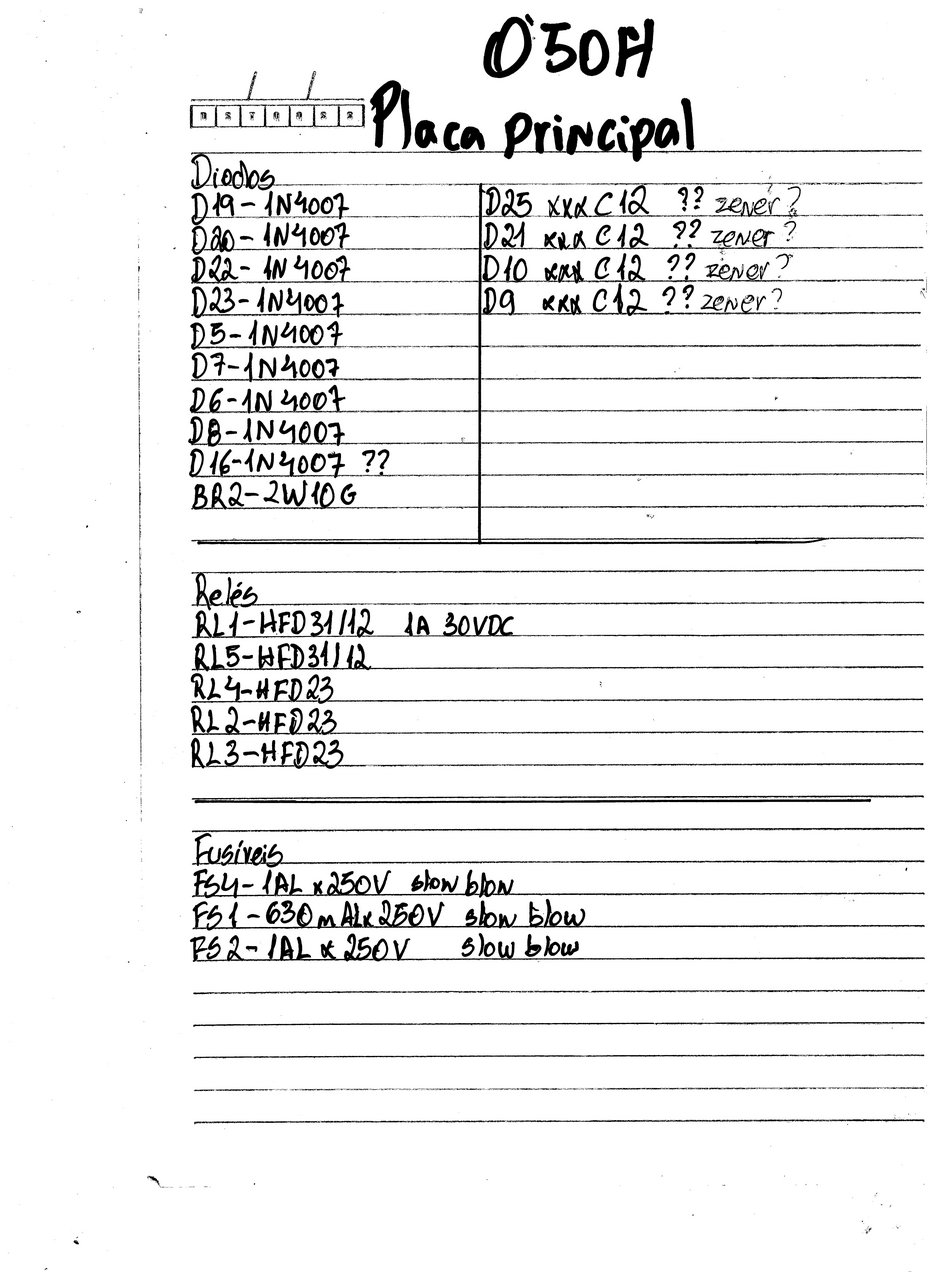 O50H
Placa principal
D S T Q Q S S
Diodos
D19-1N4007
D20-1N4007
D22-1N4007
D23-1N4007
D5-1N4007
D7-1N4007
D6-1N4007
D8-1N4007
D16-1N4007 ??
BR2-2W10G
D25 xxx C12 ?? zener?
D21 xxx C12 ?? zener?
D10 xxx C12 ?? zener?
D9 xxx C12 ?? zener?
Relés
RL1-HFD31/12 1A 30VDC
RL5-HFD31/12
RL4-HFD23
RL2-HFD23
RL3-HFD23
Fusíveis
FS4-1AL x250V slow blow
FS1-630mALx250V slow blow
FS2-1AL x 250V slow blow